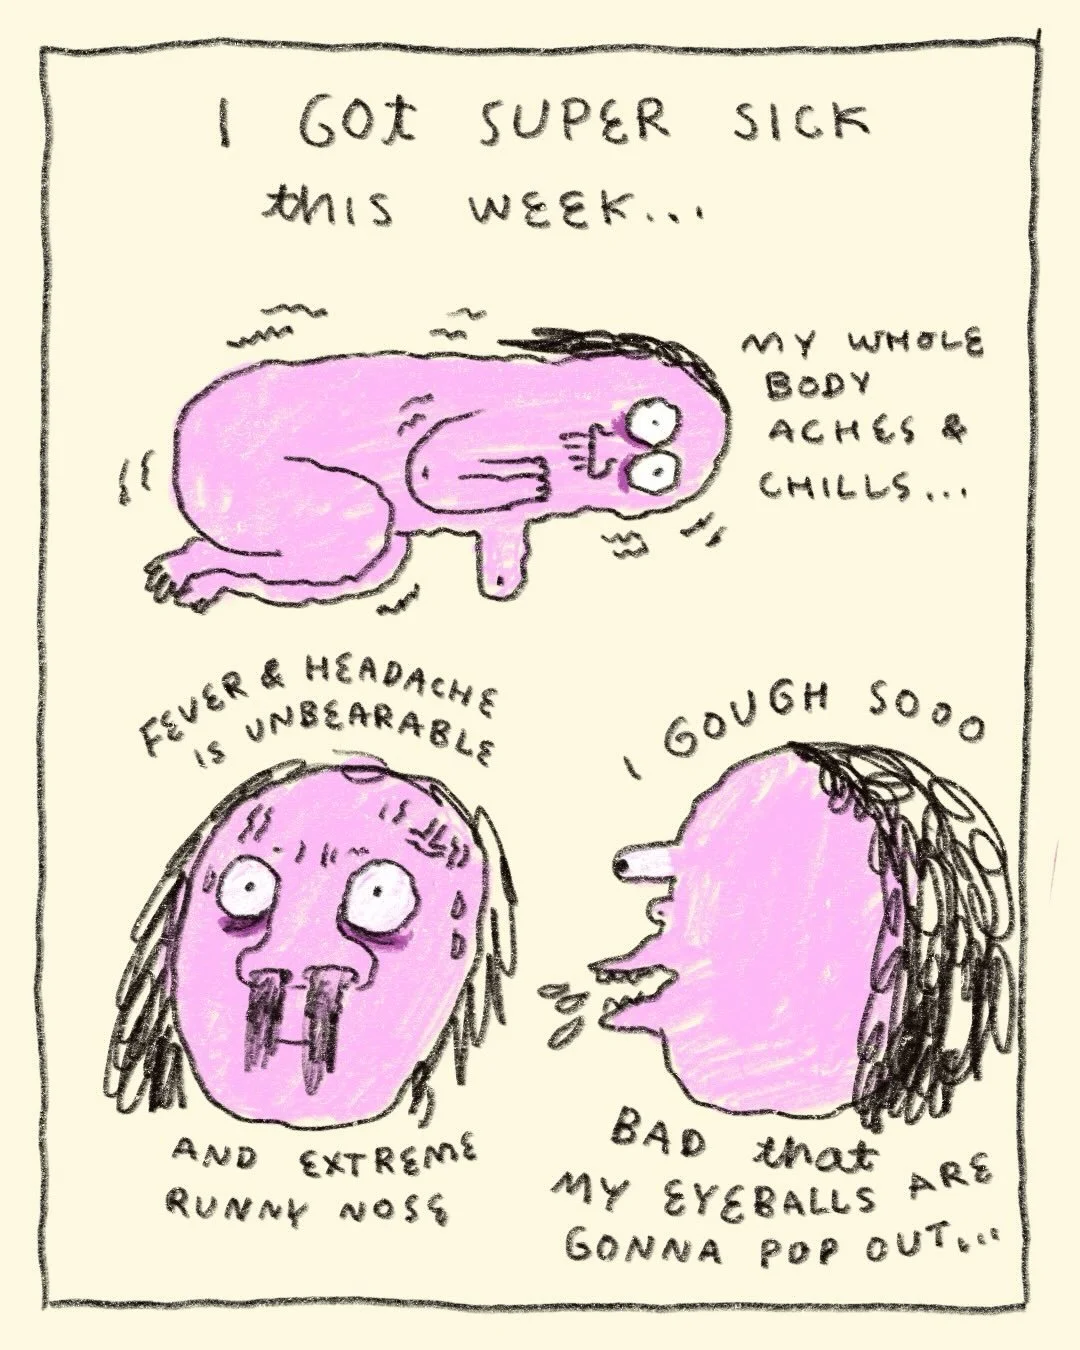 I GOt SUPER SICK
thIS WEEK...
MY WHOLE
BODY
ACHES &
CHILLS...
FEVER & HEADACHE
IS UNBEARABLE
AND EXTREME
RUNNY NOSE
I COUGH SOOO
BAD that
MY EYEBALLS ARE
GONNA POP OUT...